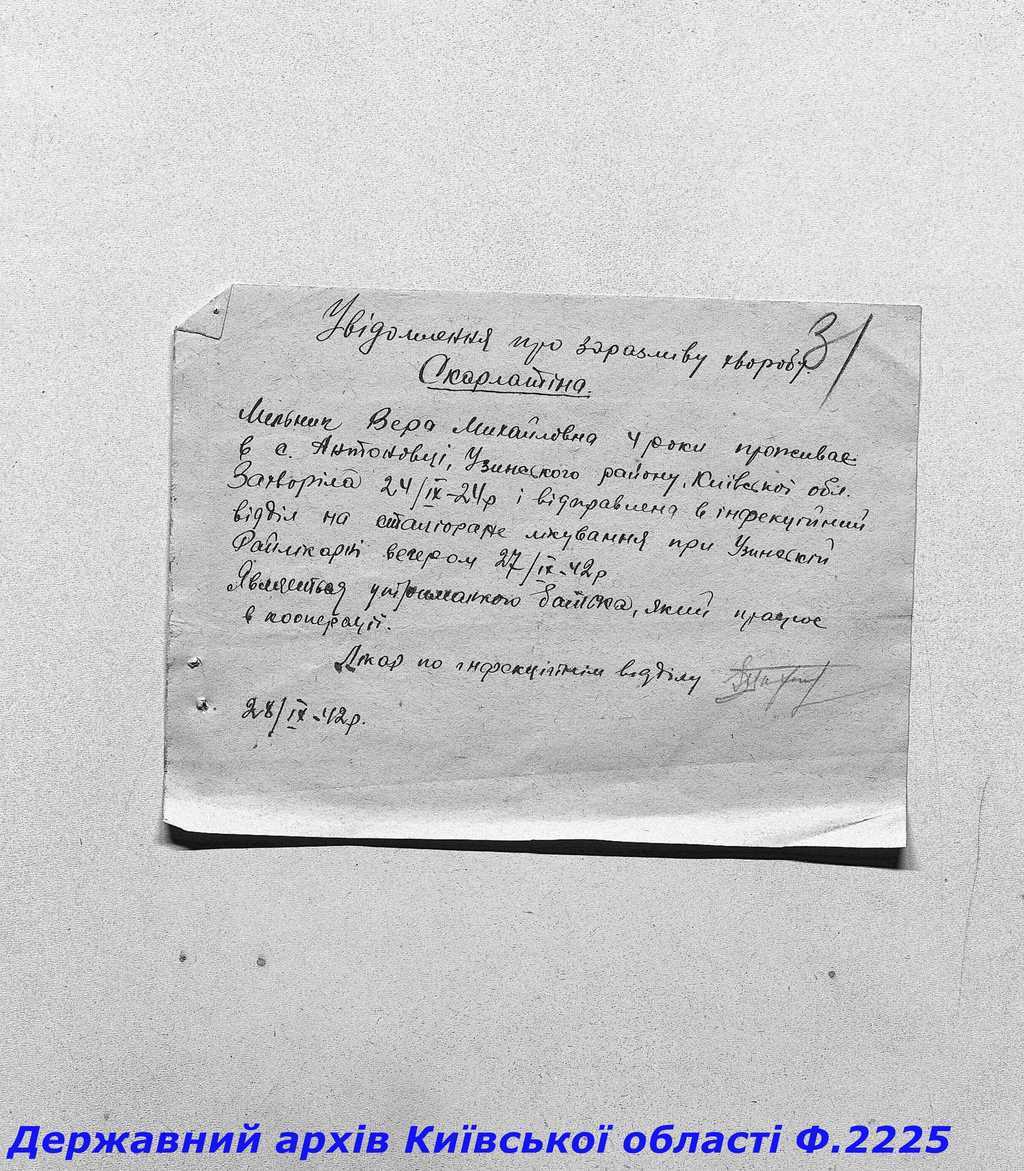 31
Увідомлення про заразливу хворобу.
Скарлатіна.
Мельник Вера Михайловна 4 роки проживає
в с. Антоновці, Узинського району, Київської обл.
Захворіла 24/IX-24р і відправлена в інфекуійний
відділ на стаціоране лікування при Узинській
Райлікарні вечером 27/IX-42р
Являється утриманкою батька, який працює
в кооперації.
Лікар по інфекційнім відділу
28/IX-42р.
Державний архів Київської області Ф.2225